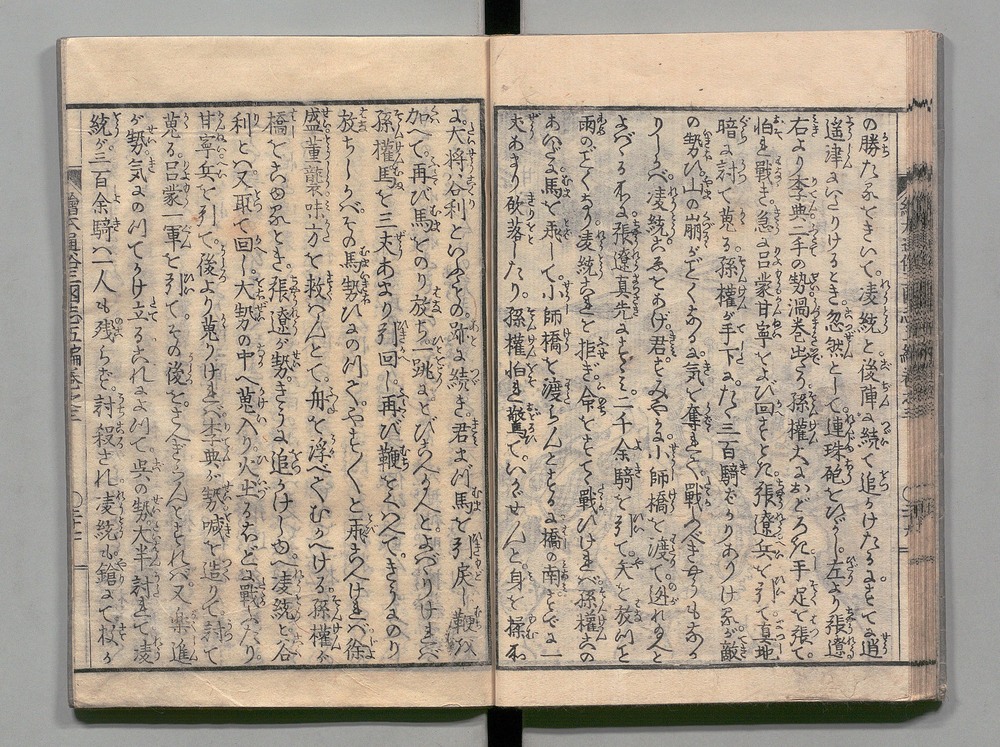 の勝たるをきいて凌統と後陣に続て追かけたるにすでに逍
遥津にいたりけるとき忽然として連珠砲ひゞし左より張遼
右より李典二手の勢渦巻出たり孫權大におどろき手足を張て
怕れ戰き急に呂蒙甘寧をよび回さんとせしに張遼兵を引て真地
暗に討て蒐る孫權が手下にたゞ三百騎ばかりありけるが敵
の勢ひ山の崩がごとくなるに気を奪はれ戰ふべきやうもなか
りしかば凌統こゑをあげ君はやくみやかに小師橋を渡て逃れ給へと
よばゝる不に張遼真先にすゝみ二千余騎を引て矢を放つと
雨のごとくなり凌統これを拒ぎ命をすてゝ戰ひければ孫權その
あひだに馬を飛して小師橋を渡らんとするに橋の南すでに一
丈あまり砍落したり孫權怕れ驚ていかゞせんと身を揉不
に大将谷利といふものその跡に続き君まづ馬を引戻し鞭を
加へて再び馬をのり放ち一跳にとびたまへとよばゝりければ
孫權馬を三丈あまり引回し再び鞭をくはへてまつすぐにのり
放ちしかばその馬勢ひにのつてやす〳〵と飛こへければ徐
盛董襲味方を救はんとて舟を浮べてむかへける孫權が
橋をこゆるとき張遼が勢きうに追かけしゆへ凌統と谷
利とハ又取て回し大勢の中へ蒐入り火出るほどに戰ひたり
甘寧兵を引て後より蒐りければ李典が勢喊を造りて討て
蒐る呂蒙一軍を引てその後をさへぎらんとすれバ又楽進
が勢気にのつてかけ立るこれによつて呉の勢大半討れて凌
統が三百余騎ハ一人も残らず討殺され凌統も鎗にて杦を
繪本通俗三國志五編巻之三